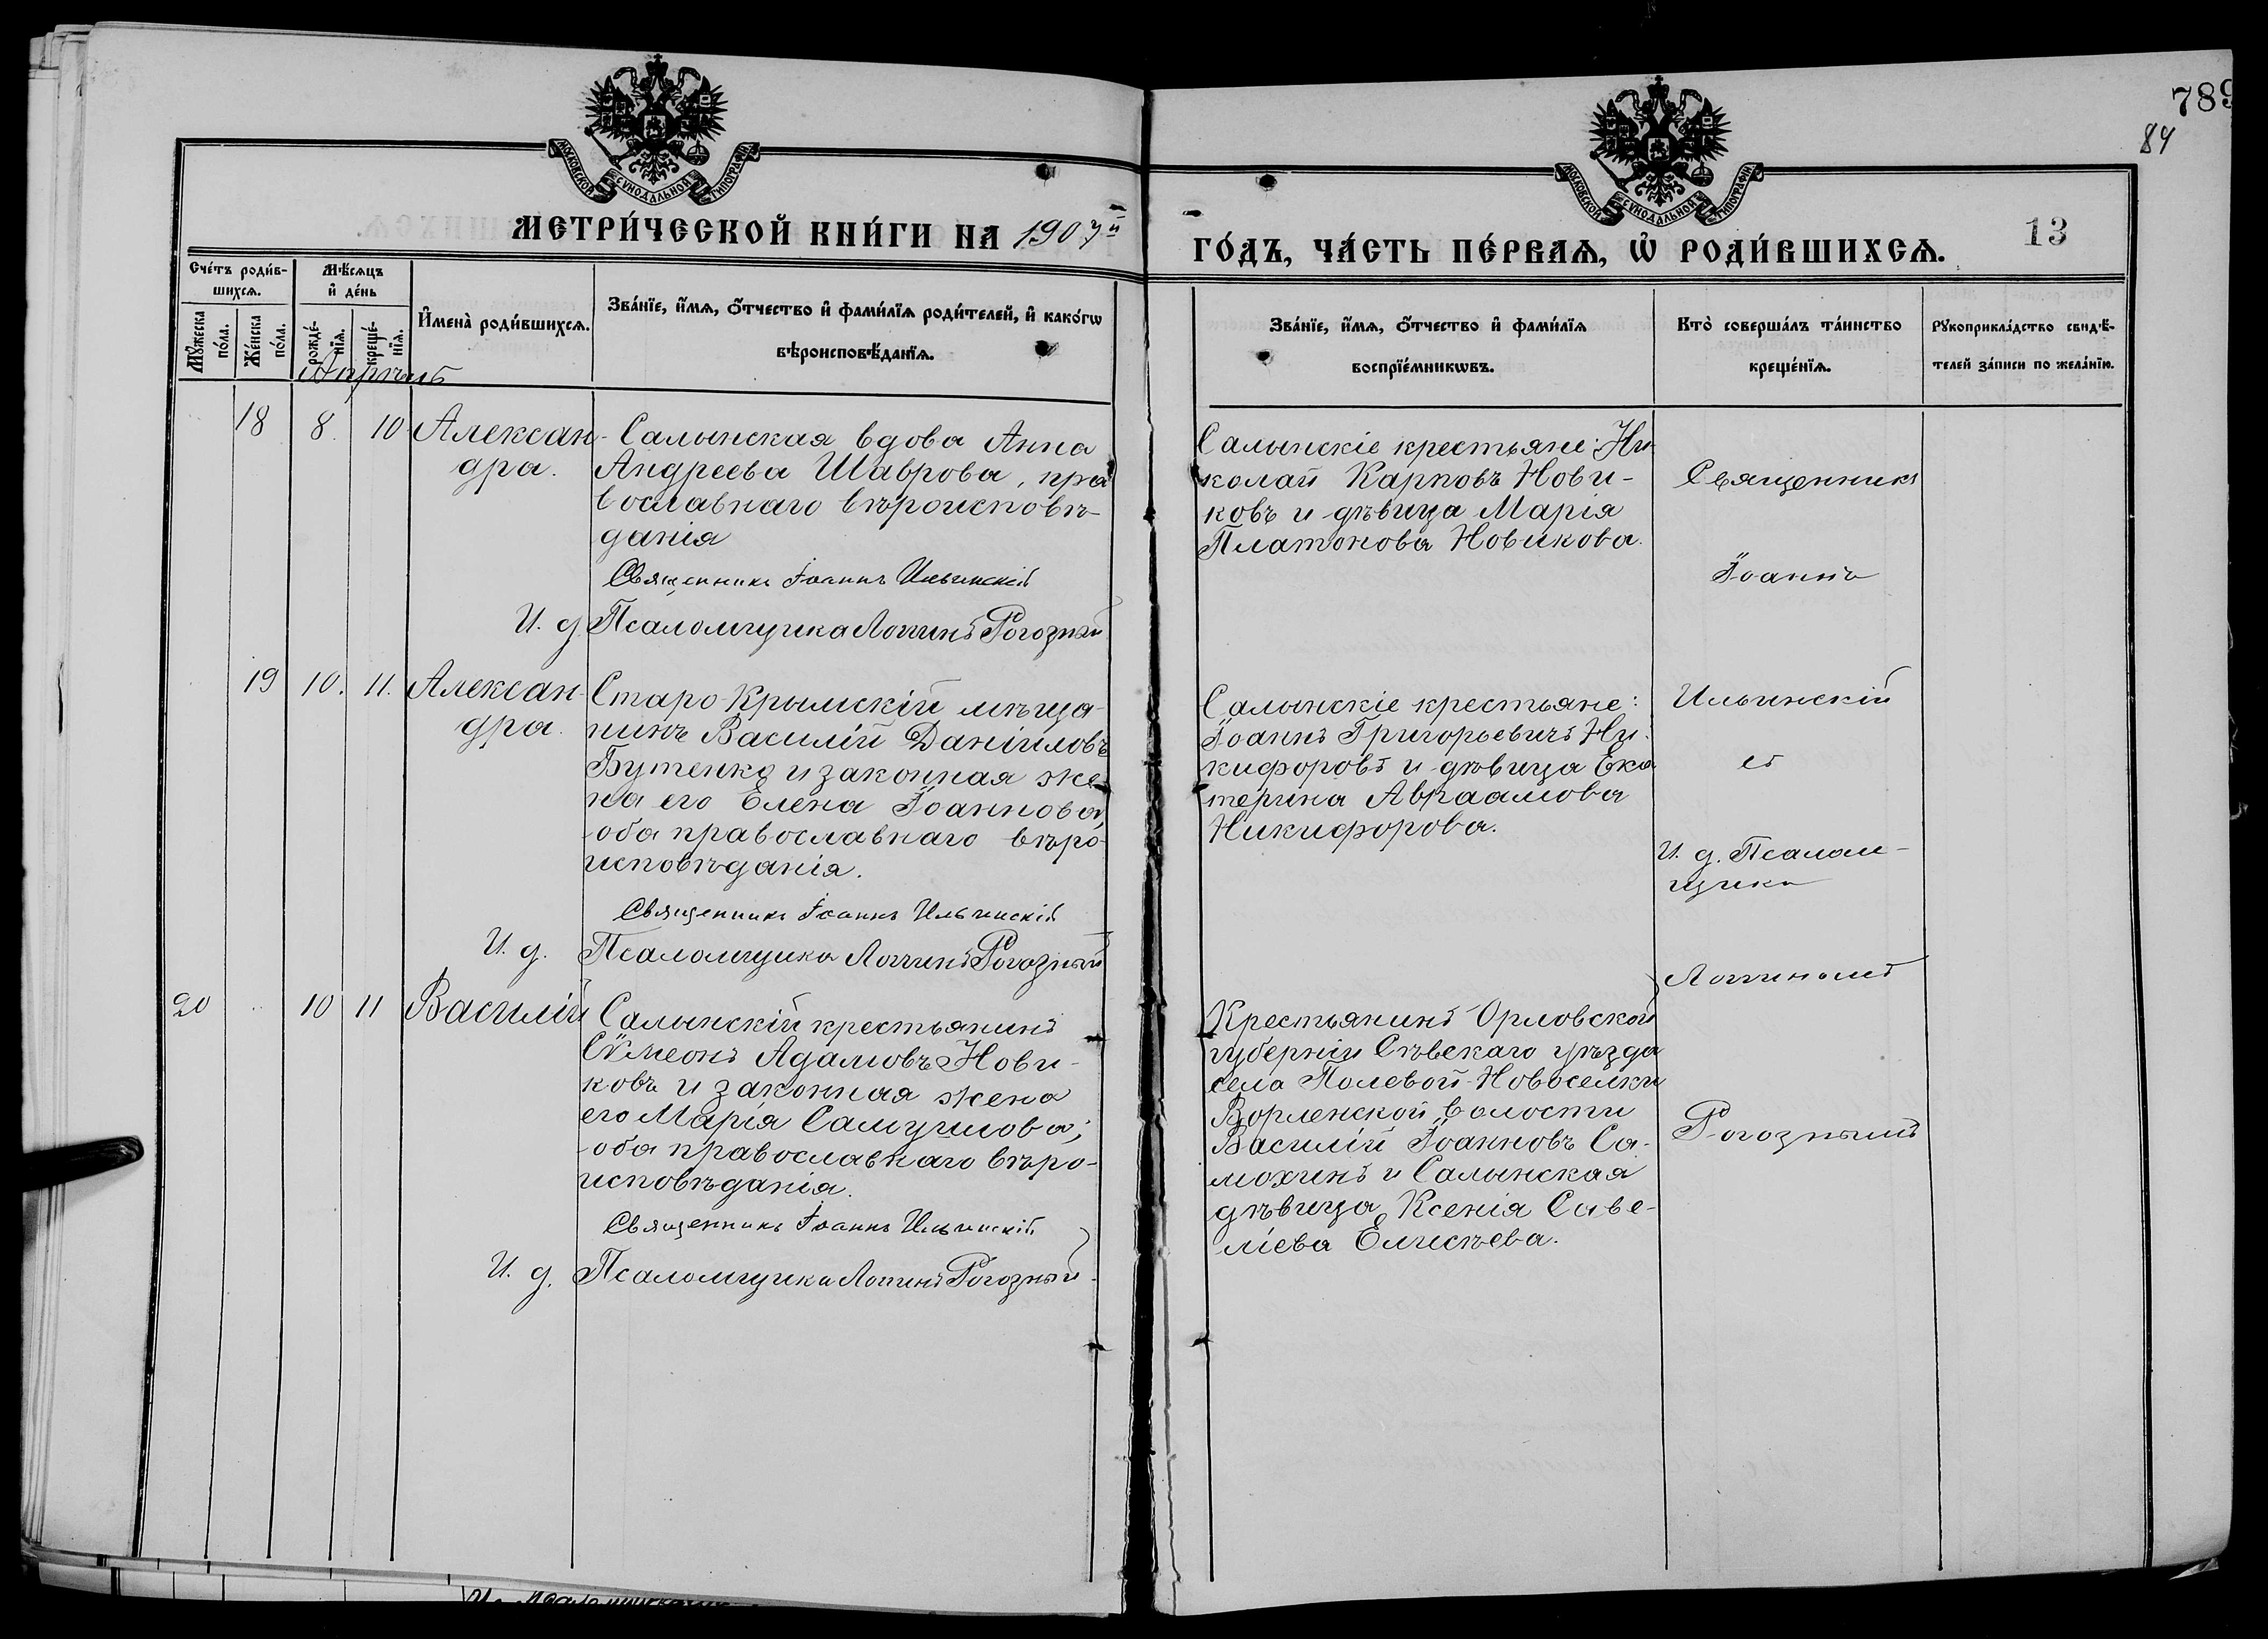 789
84
13
МОСКОВСКОЙ СѴНОДАЛЬНОЙ ТИПОГРАФІИ
МОСКОВСКОЙ СѴНОДАЛЬНОЙ ТИПОГРАФІИ
МЕТРИ́ЧЕСКОЙ КНИ́ГИ НА 1907й
ГО́ДЪ, ЧА́СТЬ ПЕ́РВАѦ, Ѽ РОДИ́ВШИХСѦ.
Сче́тъ роди́в-
шихсѧ.
Мꙋ́жеска
по́ла.
Же́нска
по́ла.
Мѣ́сѧцъ
и҆ де́нь
рожде́-
нїѧ.
креще́-
нїѧ.
И҆мена̀ роди́вшихсѧ.
Зва́нїе, и҆́мѧ, ѻ҆́тчество и҆ фами́лїѧ роди́телей, и҆ како́гѡ
вѣроисповѣ́данїѧ.
Зва́нїе, и҆́мѧ, ѻ҆́тчество и҆ фами́лїѧ
воспрїе́мникѡвъ.
Кто̀ соверша́лъ та́инство
креще́нїѧ.
Рꙋкоприкла́дство свидѣ́-
телей за́писи по жела́нїю.
Апрѣль
18 8. 10 Алексан-
дра.
Салынская вдова Анна
Андреева Шаврова, пра
вославнаго вѣроисповѣ-
данія
Священникъ Іоаннъ Ильинскій
И. д. Псаломщика Логгинъ Рогозный
Салынскіе крестьяне: Ни
колай Карповъ Нови-
ковъ и дѣвица Марія
Платонова Новикова.
Священникъ
Іоаннъ
19 10. 11. Алексан-
дра.
Старо-Крымскій мѣща-
нинъ Василій Даніиловъ
Бутенко и законная же-
на его Елена Іоаннова,
оба православнаго вѣро-
исповѣданія.
Священникъ Іоаннъ Ильинскій
И. д. Псаломщика Логгинъ Рогозный
Салынскіе крестьяне:
Іоаннъ Григорьевичъ Ни-
кифоровъ и дѣвица Ека
терина Авраамова
Никифорова.
Ильинскій
съ
И. д. Псалом-
щика
Логгиномъ
20 10 11 Василій
Салынскій крестьянинъ
Сѵмеонъ Адамовъ Нови-
ковъ и законная жена
его Марія Самуилова;
оба православнаго вѣро-
исповѣданія.
Священникъ Іоаннъ Ильинскій
И. д. Псаломщика Логгинъ Рогозный
Крестьянинъ Орловской
губерніи Сѣвскаго уѣзда
села Полевой-Новоселки
Ворленской волости
Василій Іоанновъ Са-
мохинъ и Салынская
дѣвица Ксенія Саве-
ліева Елисѣева.
Рогознымъ